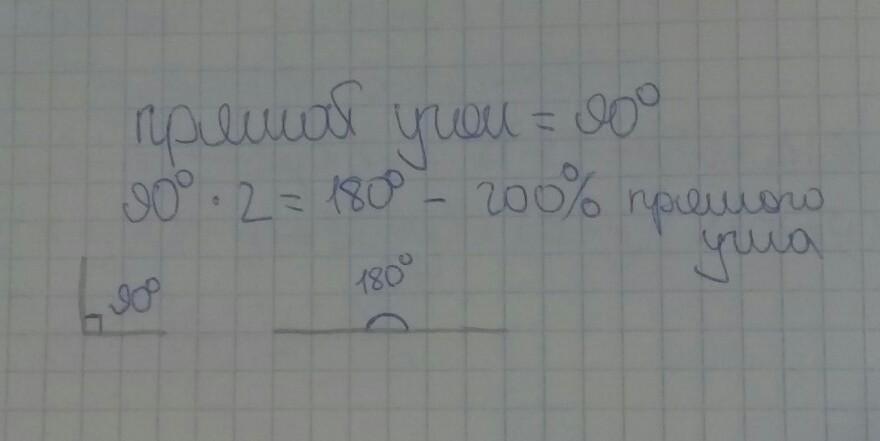 прямой угол = 90°
90° · 2 = 180° - 200% прямого
угла
90°
180°